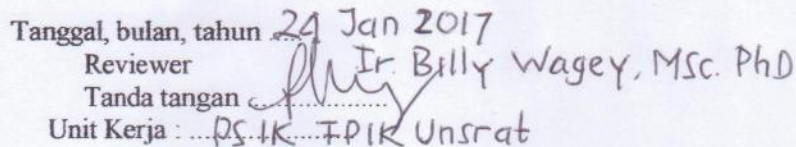 Tanggal, bulan, tahun 24 Jan 2017
Reviewer Ir. Billy Wagey, MSc. PhD
Tanda tangan
Unit Kerja : PS IK FPIK Unsrat